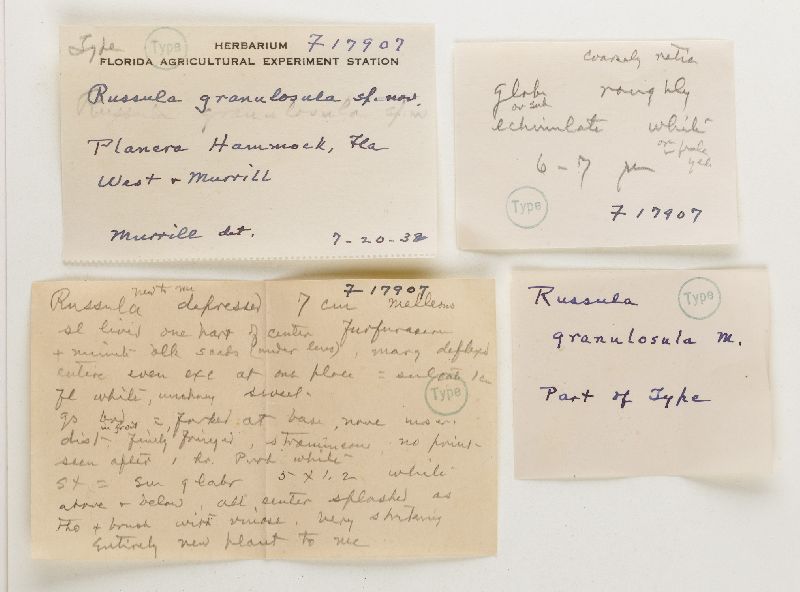 Type Type HERBARIUM F 17907
FLORIDA AGRICULTURAL EXPERIMENT STATION
Russula granulosula sp. nov.
Planera Hammock, Fla
West & Murrill
Murrill det. 7-20-38
coarsely
globs roughly
or sub
echinulate white
6-7 µm
Type
F 17907
new to me F 17907
Russula depressed 7 cm
sl livid one part of center furfuraceous
+ minute blk (under lens), marg deflexed
entire even exc at one place =
Type
white, unchang sweet.
forked at base, none
dist. finely fringed, stramineous, no
seen after 1 hr. white
St = glabr 5 x 1.2 white
above + below, all center splashed as
tho + brush with vinose. Very striking
Entirely new plant to me
Russula Type
granulosula M.
Part of Type